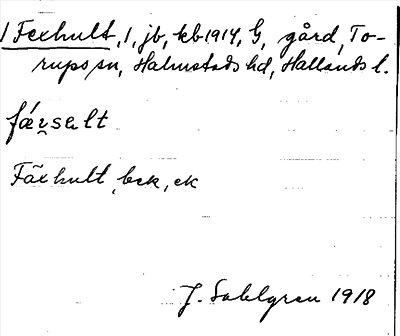 1 Fexhult, 1, jb, kb 1914, G, gård, To-
rups sn, Halmstads hd, Hallands l.
Fäxhult, bek, ek
J. Sahlgren 1918